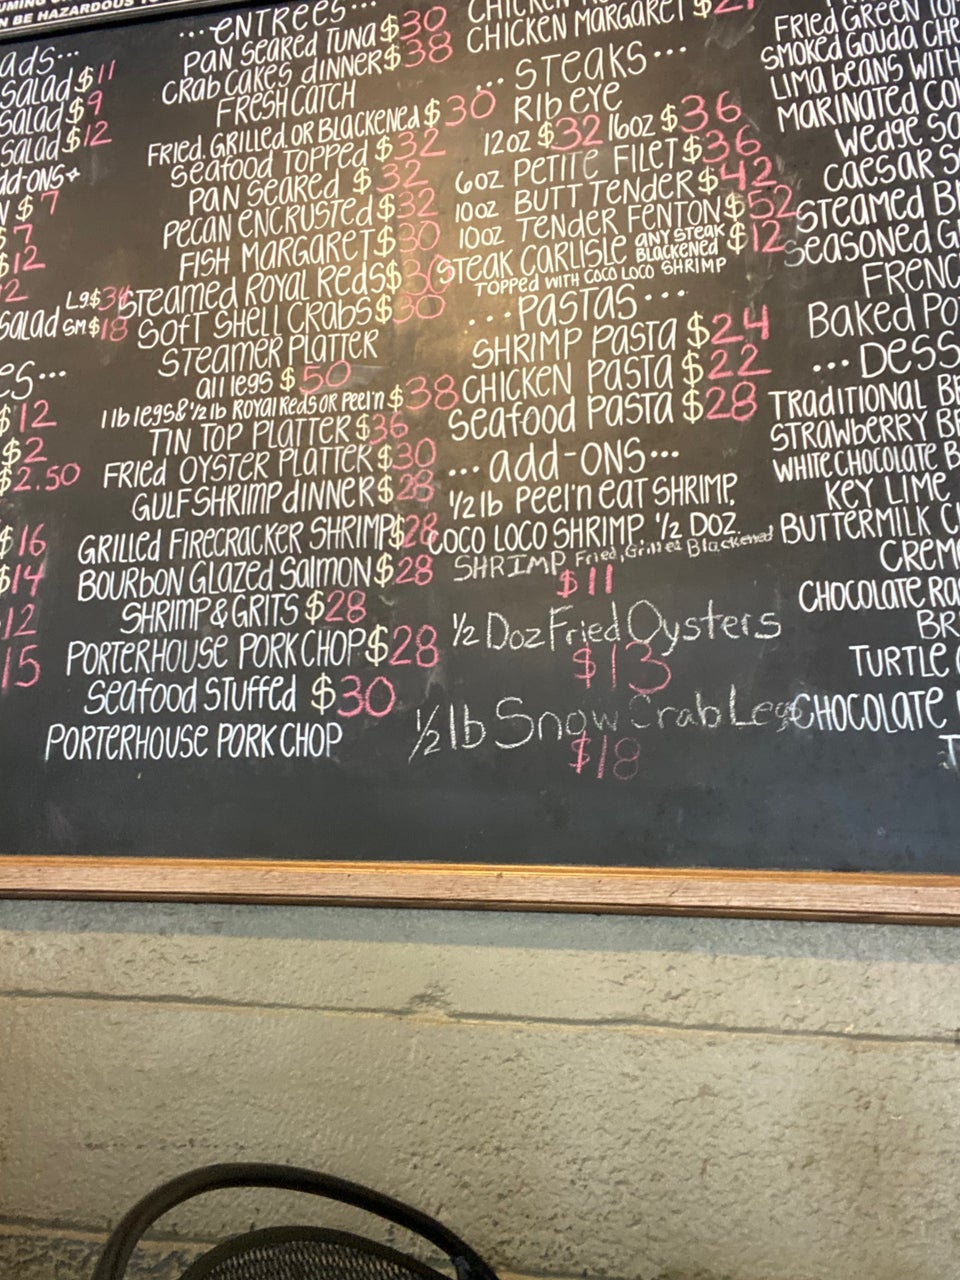 UMING
N BE HAZARDOUS TO
ads...
Salad $11
Salad $9
Salad $12
dd-ons+
$7
$7
$12
Lg $34
Salad Sm $18
es...
$12
$2
$2.50
$16
$14
12
15
...entrees...
Pan Seared Tuna $30
Crab Cakes dinner $38
Fresh Catch
Fried, Grilled, or Blackened $30
Seafood Topped $32
Pan Seared $32
Pecan Encrusted $32
Fish Margaret $30
Steamed Royal Reds $30
Soft Shell Crabs $30
Steamer Platter
all legs $50
1 lb legs & 1/2 lb Royal Reds or Peel'n $38
Tin Top Platter $36
Fried Oyster Platter $30
Gulf Shrimp dinner $28
Grilled Firecracker Shrimp $28
Bourbon Glazed Salmon $28
Shrimp & Grits $28
Porterhouse Pork Chop $28
Seafood Stuffed $30
Porterhouse Pork Chop
Chicken
Chicken Margaret
...Steaks...
Rib eye
12oz $32 16oz $36
6oz Petite Filet $36
10oz Butt Tender $42
10oz Tender Fenton $52
Steak Carlisle any steak blackened $12
Topped with Coco Loco Shrimp
...Pastas...
Shrimp Pasta $24
Chicken Pasta $22
Seafood Pasta $28
...add-ons...
1/2 lb Peel'n eat Shrimp,
Coco Loco Shrimp, 1/2 Doz.
Shrimp Fried, Grilled, Blackened
$11
1/2 Doz Fried Oysters
$13
1/2 lb Snow Crab Legs
$18
Fried Green
Smoked Gouda
Lima beans with
Marinated
Wedge
Caesar
Steamed
Seasoned
Baked
...
Traditional
Strawberry
White Chocolate
Key Lime
Buttermilk
Chocolate
Turtle
Chocolate